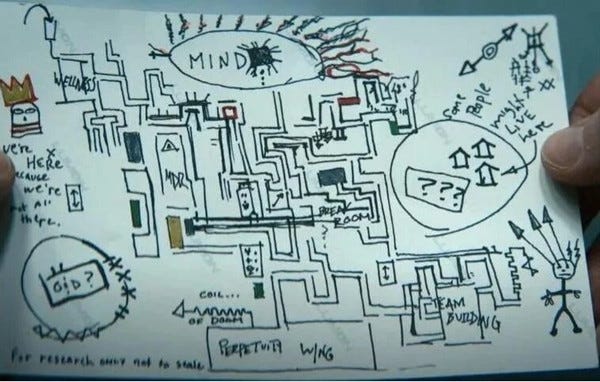 MIND
WELLNESS
some
PEOPLE
might
LIVE
here
we're
HERE
because
we're
not all
there.
MDR
???
BREAK
ROOM
??
GOD?
COIL...
OF DOOM
TEAM
BUILDING
PERPETUITY WING
For research only not to scale.